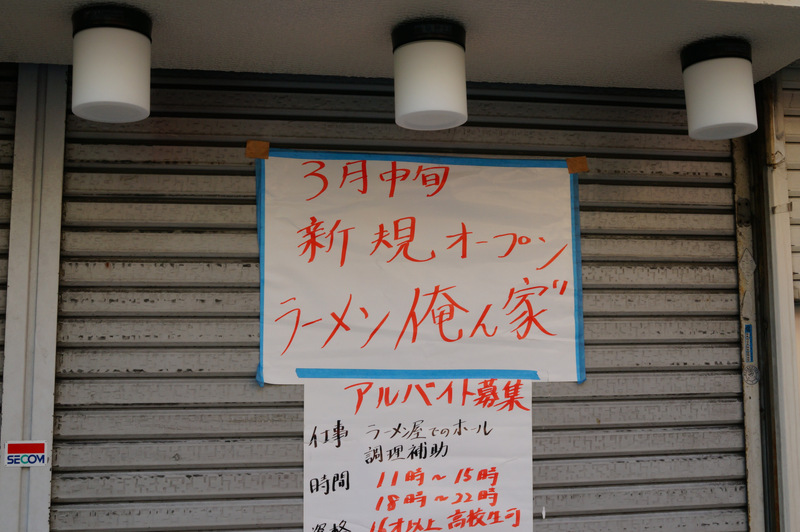 3月中旬
新規オープン
ラーメン俺ん家゛
アルバイト募集
仕事 ラーメン屋でのホール
調理補助
時間 11時~15時
18時~22時
資格 16才以上 高校生可
SECOM